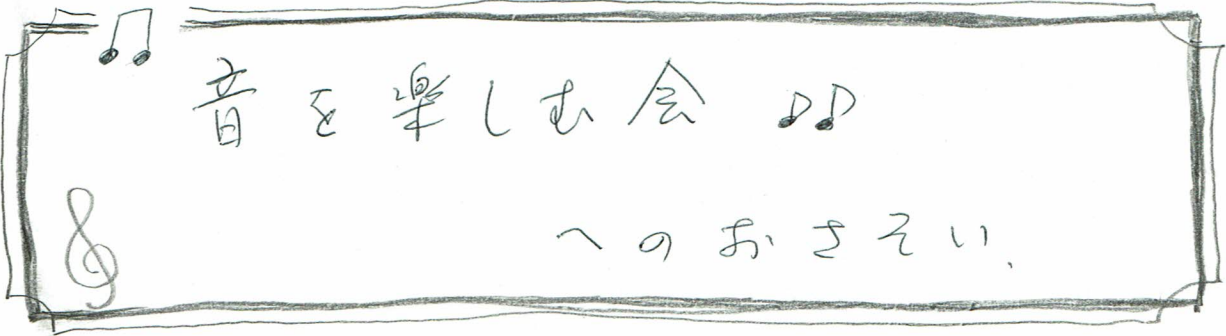 音を楽しむ会 ♪♪
へのおさそい、